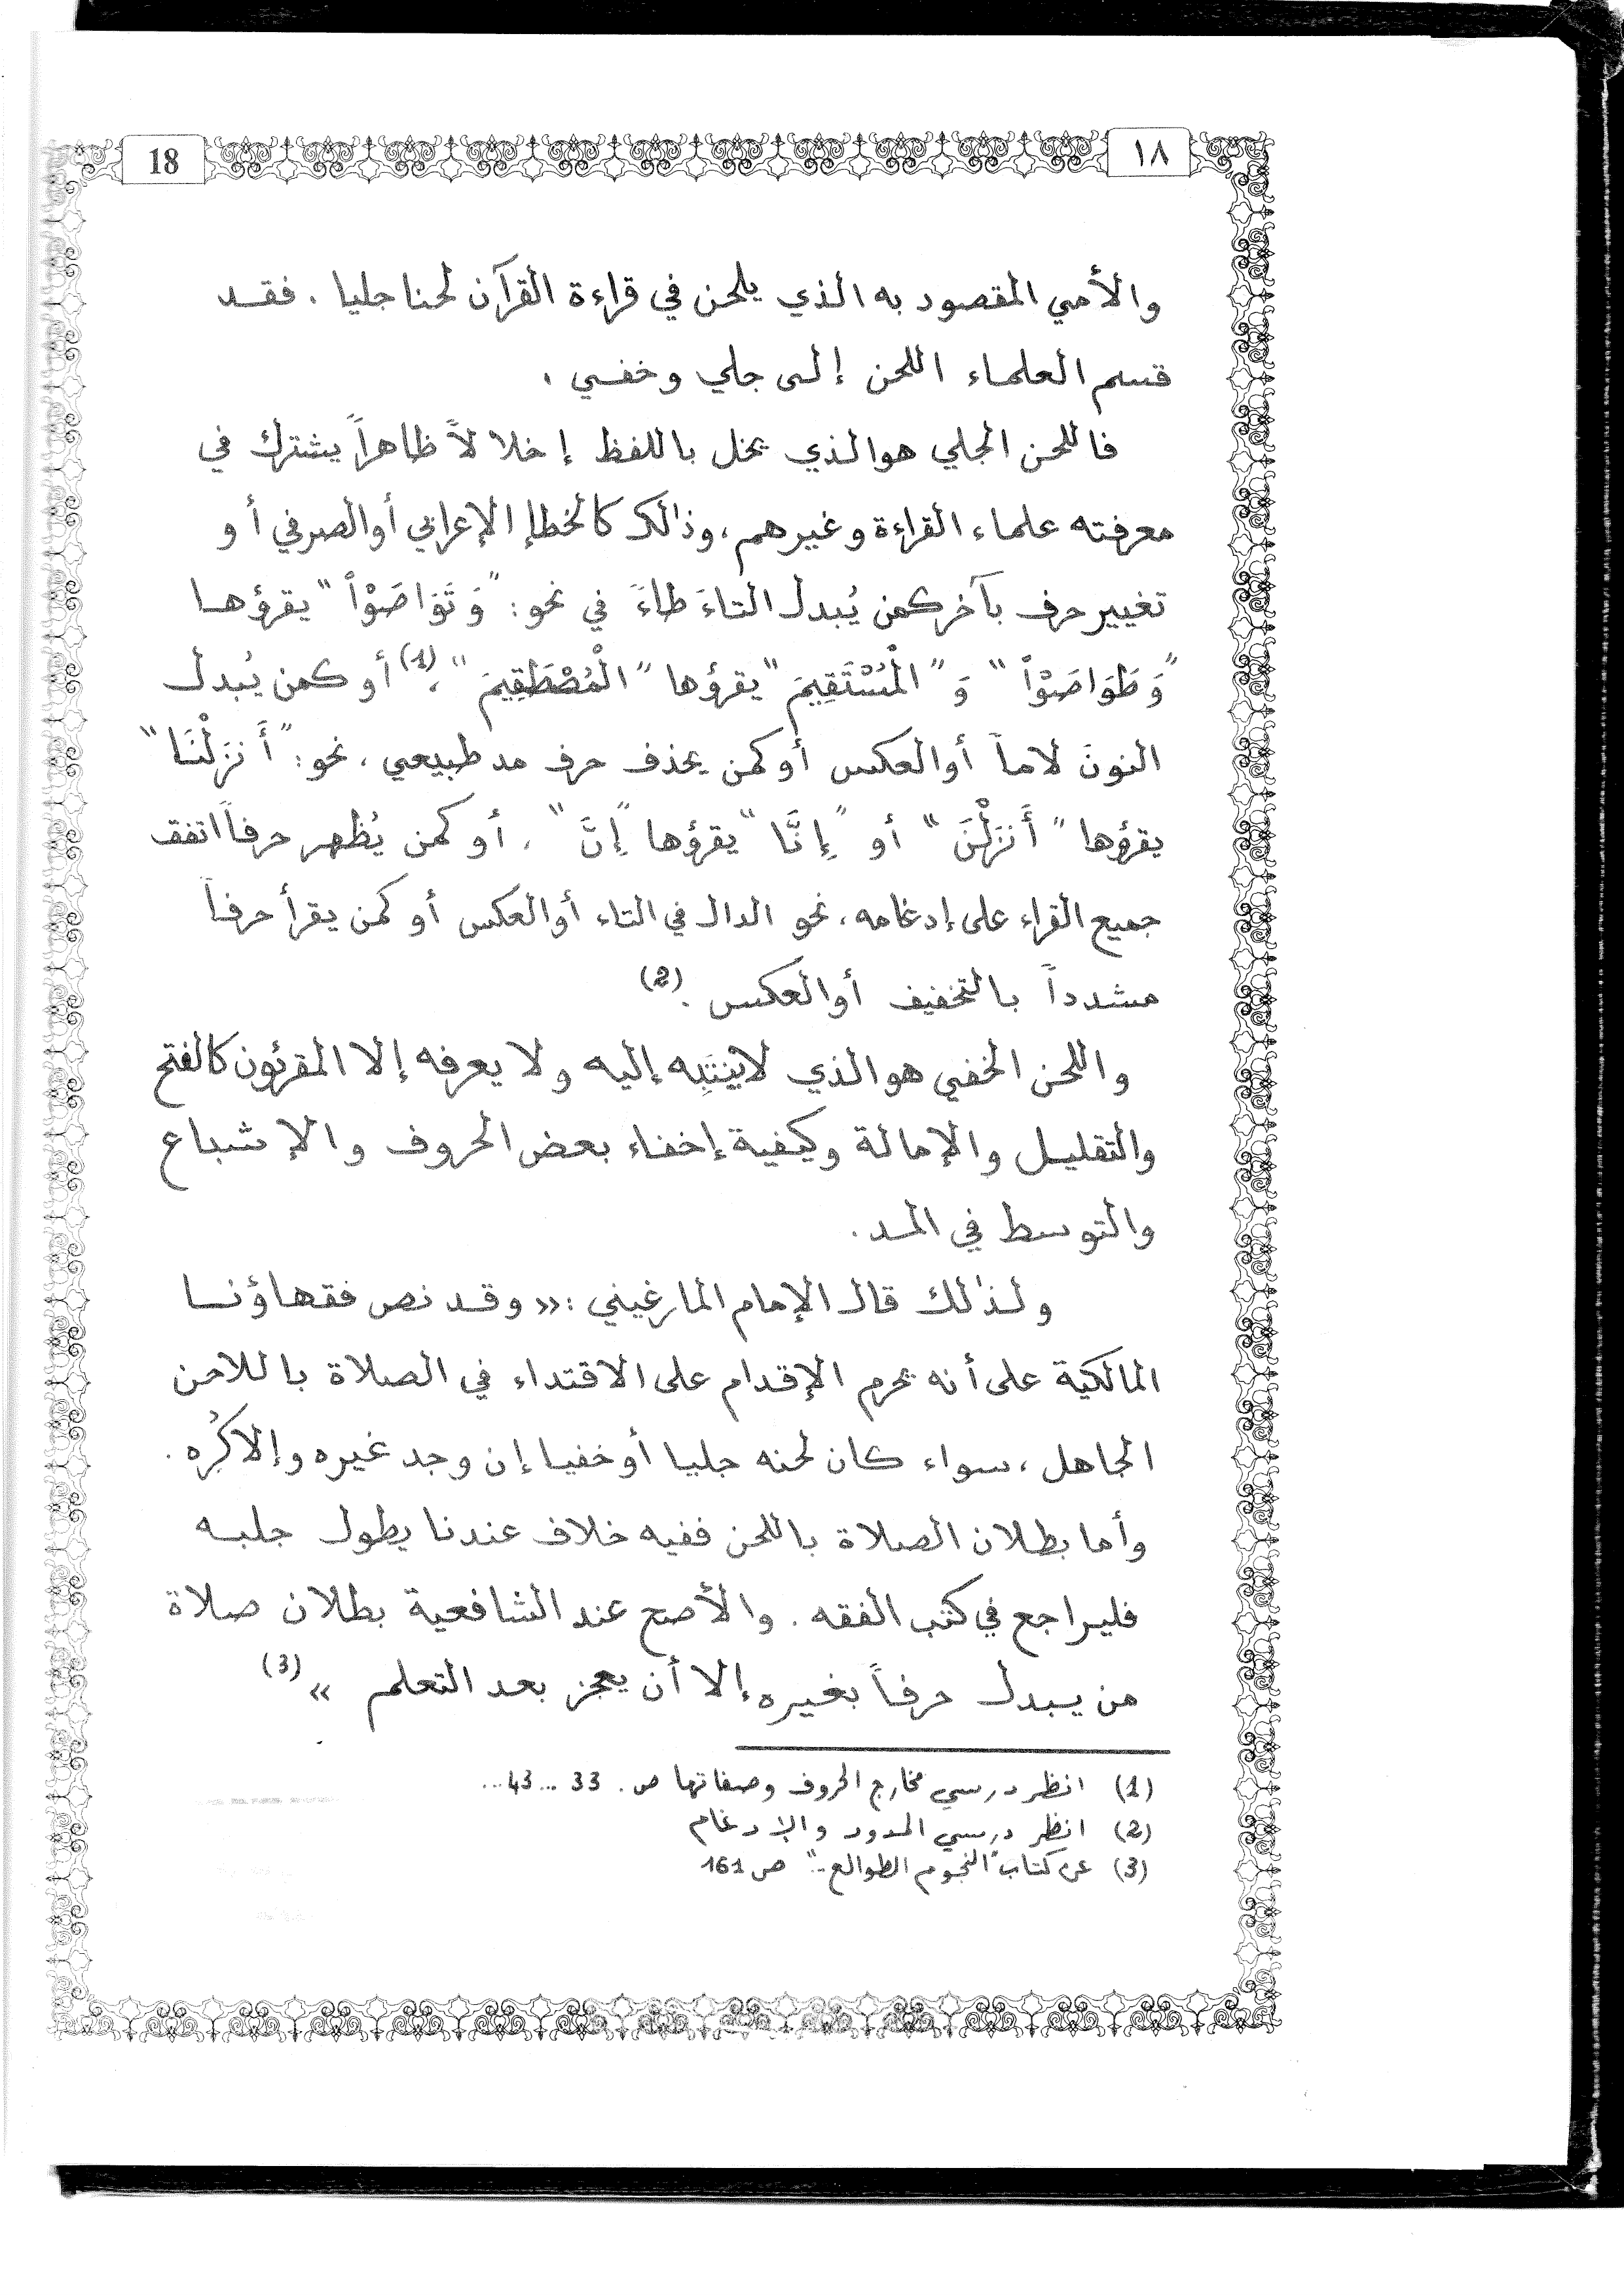 18
١٨
والأمي المقصود به الذي يلحن في قراءة القرآن لحنا جليا . فقد
قسم العلماء اللحن إلى جلي وخفي .
فاللحن الجلي هو الذي يخل باللفظ إخلالاً ظاهراً يشترك في
معرفته علماء القراءة وغيرهم ، وذالك كالخطإ الإعرابي أو الصرفي أو
تغيير حرف بآخر كمن يُبدل التاءَ طاءً في نحو : "وَتَوَاصَوْاْ" يقرؤها
"وَطَوَاصَوْاْ" وَ"الْمُسْتَقِيمَ" يقرؤها "الْمُصْطَقِيمَ" ،(1) أو كمن يُبدل
النونَ لاماً أو العكس أو كمن يحذف حرف مد طبيعي ، نحو : "أَنزَلْنَا"
يقرؤها "أَنزَلْنَ" أو "إِنَّا" يقرؤها "إِنَّ" . أو كمن يُظهر حرفاً اتفق
جميع القراء على إدغامه ، نحو الدال في التاء أو العكس أو كمن يقرأ حرفاً
مشدداً بالتخفيف أو العكس .(2)
واللحن الخفي هو الذي لا يُنتَبِه إليه ولا يعرفه إلا المقرئون كالفتح
والتقليل والإمالة وكيفية إخفاء بعض الحروف والإشباع
والتوسط في المد .
ولذالك قال الإمام المارغيني : «وقد نص فقهاؤنا
المالكية على أنه يحرم الإقدام على الاقتداء في الصلاة باللاحن
الجاهل ، سواء كان لحنه جليا أو خفيا إن وجد غيره وإلا كُره .
وأما بطلان الصلاة باللحن ففيه خلاف عندنا يطول جلبه
فليراجع في كتب الفقه . والأصح عند الشافعية بطلان صلاة
من يبدل حرفاً بغيره إلا أن يعجز بعد التعلم » (3)
(1) انظر درسي مخارج الحروف وصفاتها ص . 33 ... 43 ...
(2) انظر درسي المدود والإدغام
(3) عن كتاب "النجوم الطوالع.." ص 161